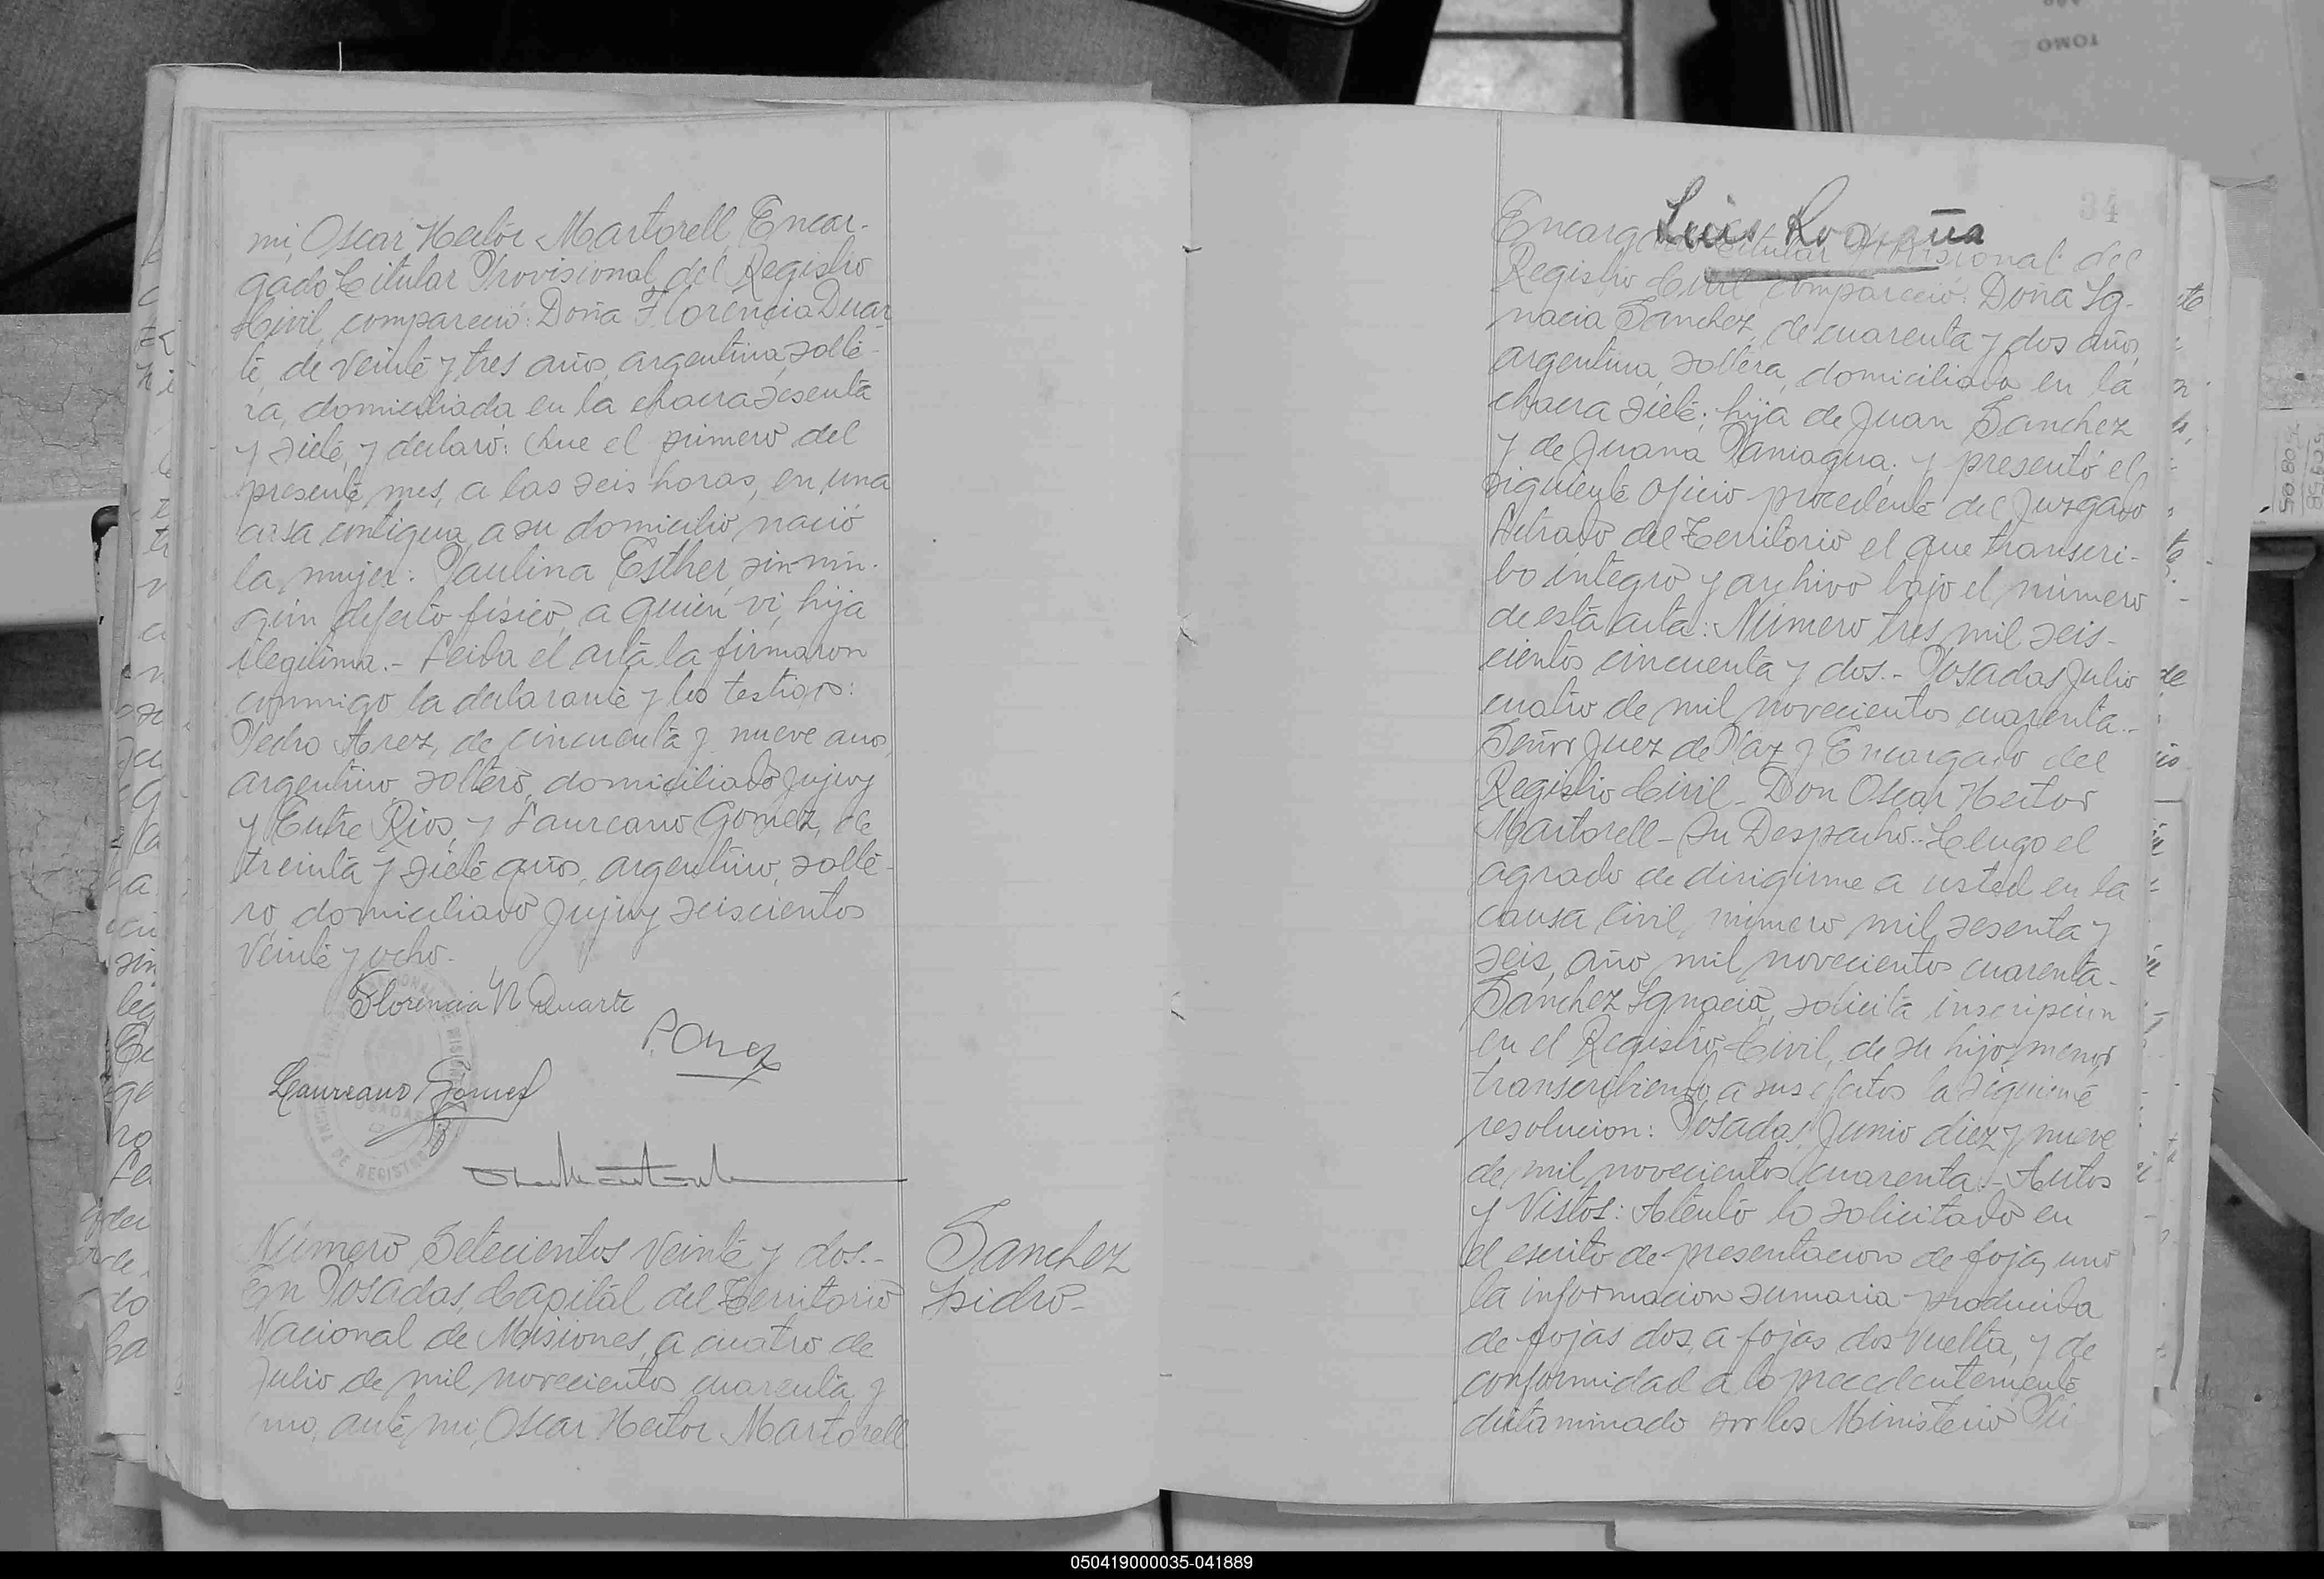 mi, Oscar Hector Martorell, Encar-
gado Titular Provisional del Registro
Civil, compareció: Doña Florencia Duar
te, de veinte y tres años, argentina, solte-
ra, domiciliada en la chacra sesenta
y siete, y declaró: Que el primero del
presente mes, a las seis horas, en una
casa contigua a su domicilio, nació
la mujer: Paulina Esther, sin nin-
gún defecto físico, a quién vi, hija
ilegítima.- Leida el acta la firmaron
conmigo la declarante y los testigos:
Pedro Arez, de cincuenta y nueve años,
argentino, soltero, domiciliado Jujuy
y Entre Rios, y Laureano Gomez, de
treinta y siete años, argentino, solte-
ro, domiciliado Jujuy seiscientos
veinte y ocho.-
Florencia N Duarte
Laureano Gomez
Número Setecientos veinte y dos.-
En Posadas, Capital del Territorio
Nacional de Misiones, a cuatro de
Julio de mil novecientos cuarenta y
uno, ante mi, Oscar Hector Martorell
Sanchez
Isidro-
34
Luis
Encargado Titular Provisional del
Registro Civil compareció: Doña Ig-
nacia Sanchez, de cuarenta y dos años,
argentina, soltera, domiciliada en la
chacra siete; hija de Juan Sanchez
y de Juana Paniagua; y presentó el
siguiente oficio procedente del Juzgado
Letrado del Territorio el que transcri-
bo íntegro y archivo bajo el número
de esta acta: Número tres mil seis-
cientos cincuenta y dos.- Posadas Julio
cuatro de mil novecientos cuarenta.-
Señor Juez de Paz y Encargado del
Registro Civil- Don Oscar Hector
Martorell- Su Despacho.- Tengo el
agrado de dirigirme a usted en la
causa Civil, número mil sesenta y
seis, año mil novecientos cuarenta-
Sánchez Ignacia, solicita inscripcion
en el Registro Civil, de su hijo menor,
transcribiendo a sus efectos la siguiente
resolucion: Posadas, Junio diez y nueve
de mil novecientos cuarenta.- Autos
y Vistos: Atento lo solicitado en
el escrito de presentacion de fojas uno
la informacion sumaria producida
de fojas dos, a fojas dos vuelta, y de
conformidad a lo precedentemente
dictaminado por los Ministerio Pú
TOMO
050419000035-041889